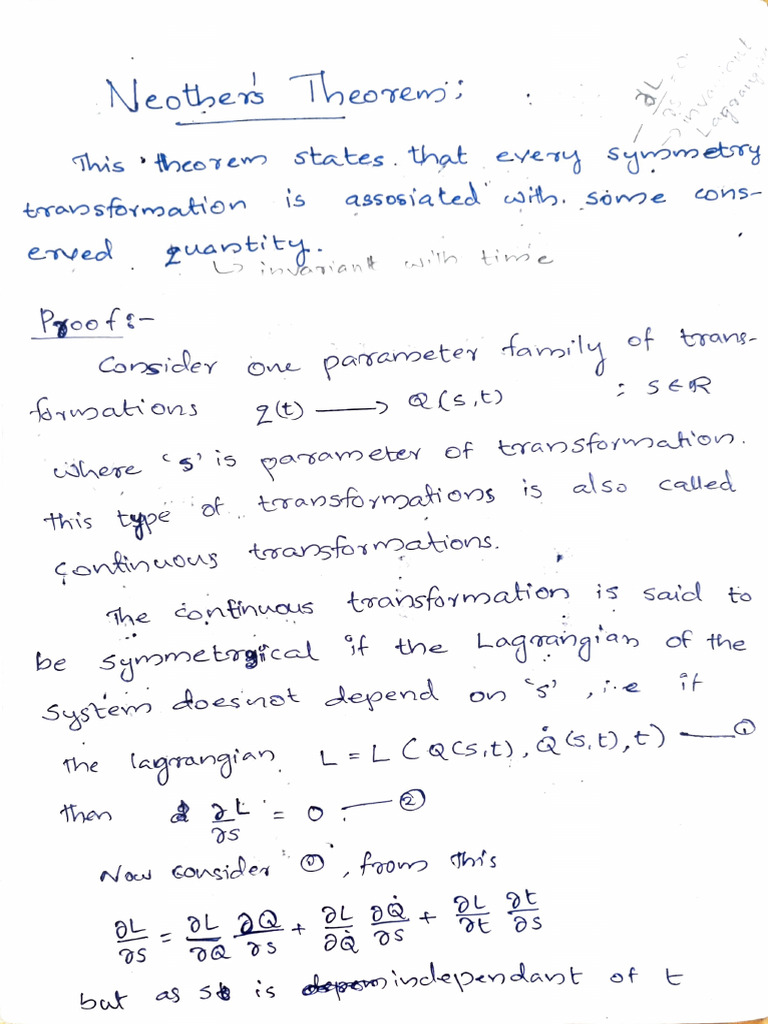 Neother's Theorem:
∂L/∂s = 0
→ invariant
Lagrangian
This theorem states that every symmetry
transformation is assosiated with some cons-
erved quantity.
↳ invariant with time
Proof:-
Consider one parameter family of trans-
formations q(t) ⟶ Q(s,t) : s∈R
where 's' is parameter of transformation.
this type of transformations is also called
continuous transformations.
The continuous transformation is said to
be symmetrical if the Lagrangian of the
system doesnot depend on 's', i.e if
the lagrangian L = L(Q(s,t), Q̇(s,t), t) — ①
then ∂L/∂s = 0. — ②
Now consider ①, from this
∂L/∂s = ∂L/∂Q ∂Q/∂s + ∂L/∂Q̇ ∂Q̇/∂s + ∂L/∂t ∂t/∂s
but as s is independant of t